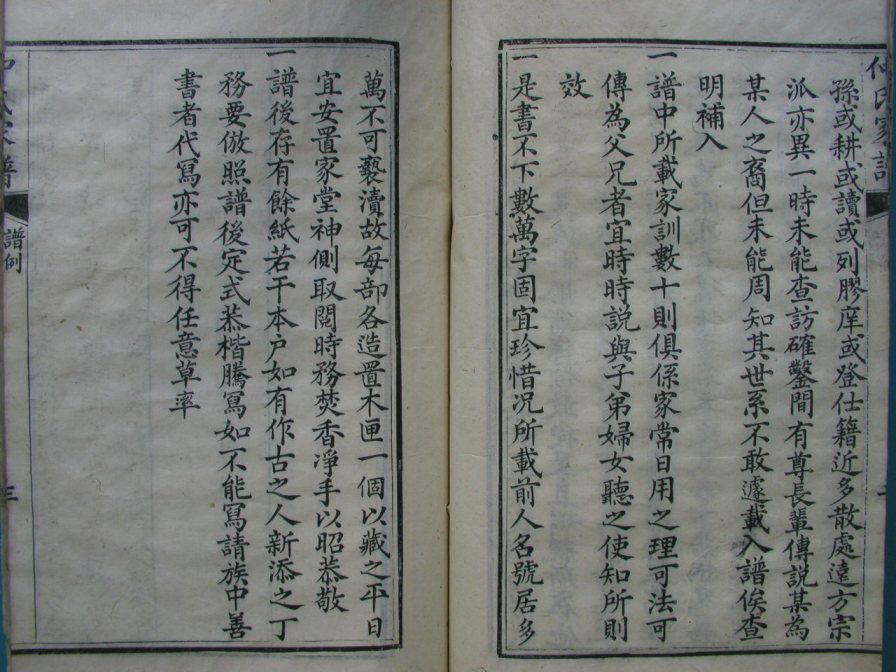 孫或耕或讀或列膠庠或登仕籍近多散處遠方宗
派亦異一時未能查訪確鑿間有尊長輩傳說某為
某人之裔但未能周知其世系不敢遽載入譜俟查
明補入
一譜中所載家訓數十則俱係家常日用之理可法可
傳為父兄者宜時時說與子弟婦女聽之使知所則
效
一是書不下數萬字固宜珍惜况所載前人名號居多
萬不可褻瀆故每部各造置木匣一個以藏之平日
宜安置家堂神側取閱時務焚香凈手以昭恭敬
一譜後存有餘紙若干本户如有作古之人新添之丁
務要倣照譜後定式恭楷騰寫如不能寫請族中善
書者代寫亦可不得任意草率
氏家譜
譜例
三